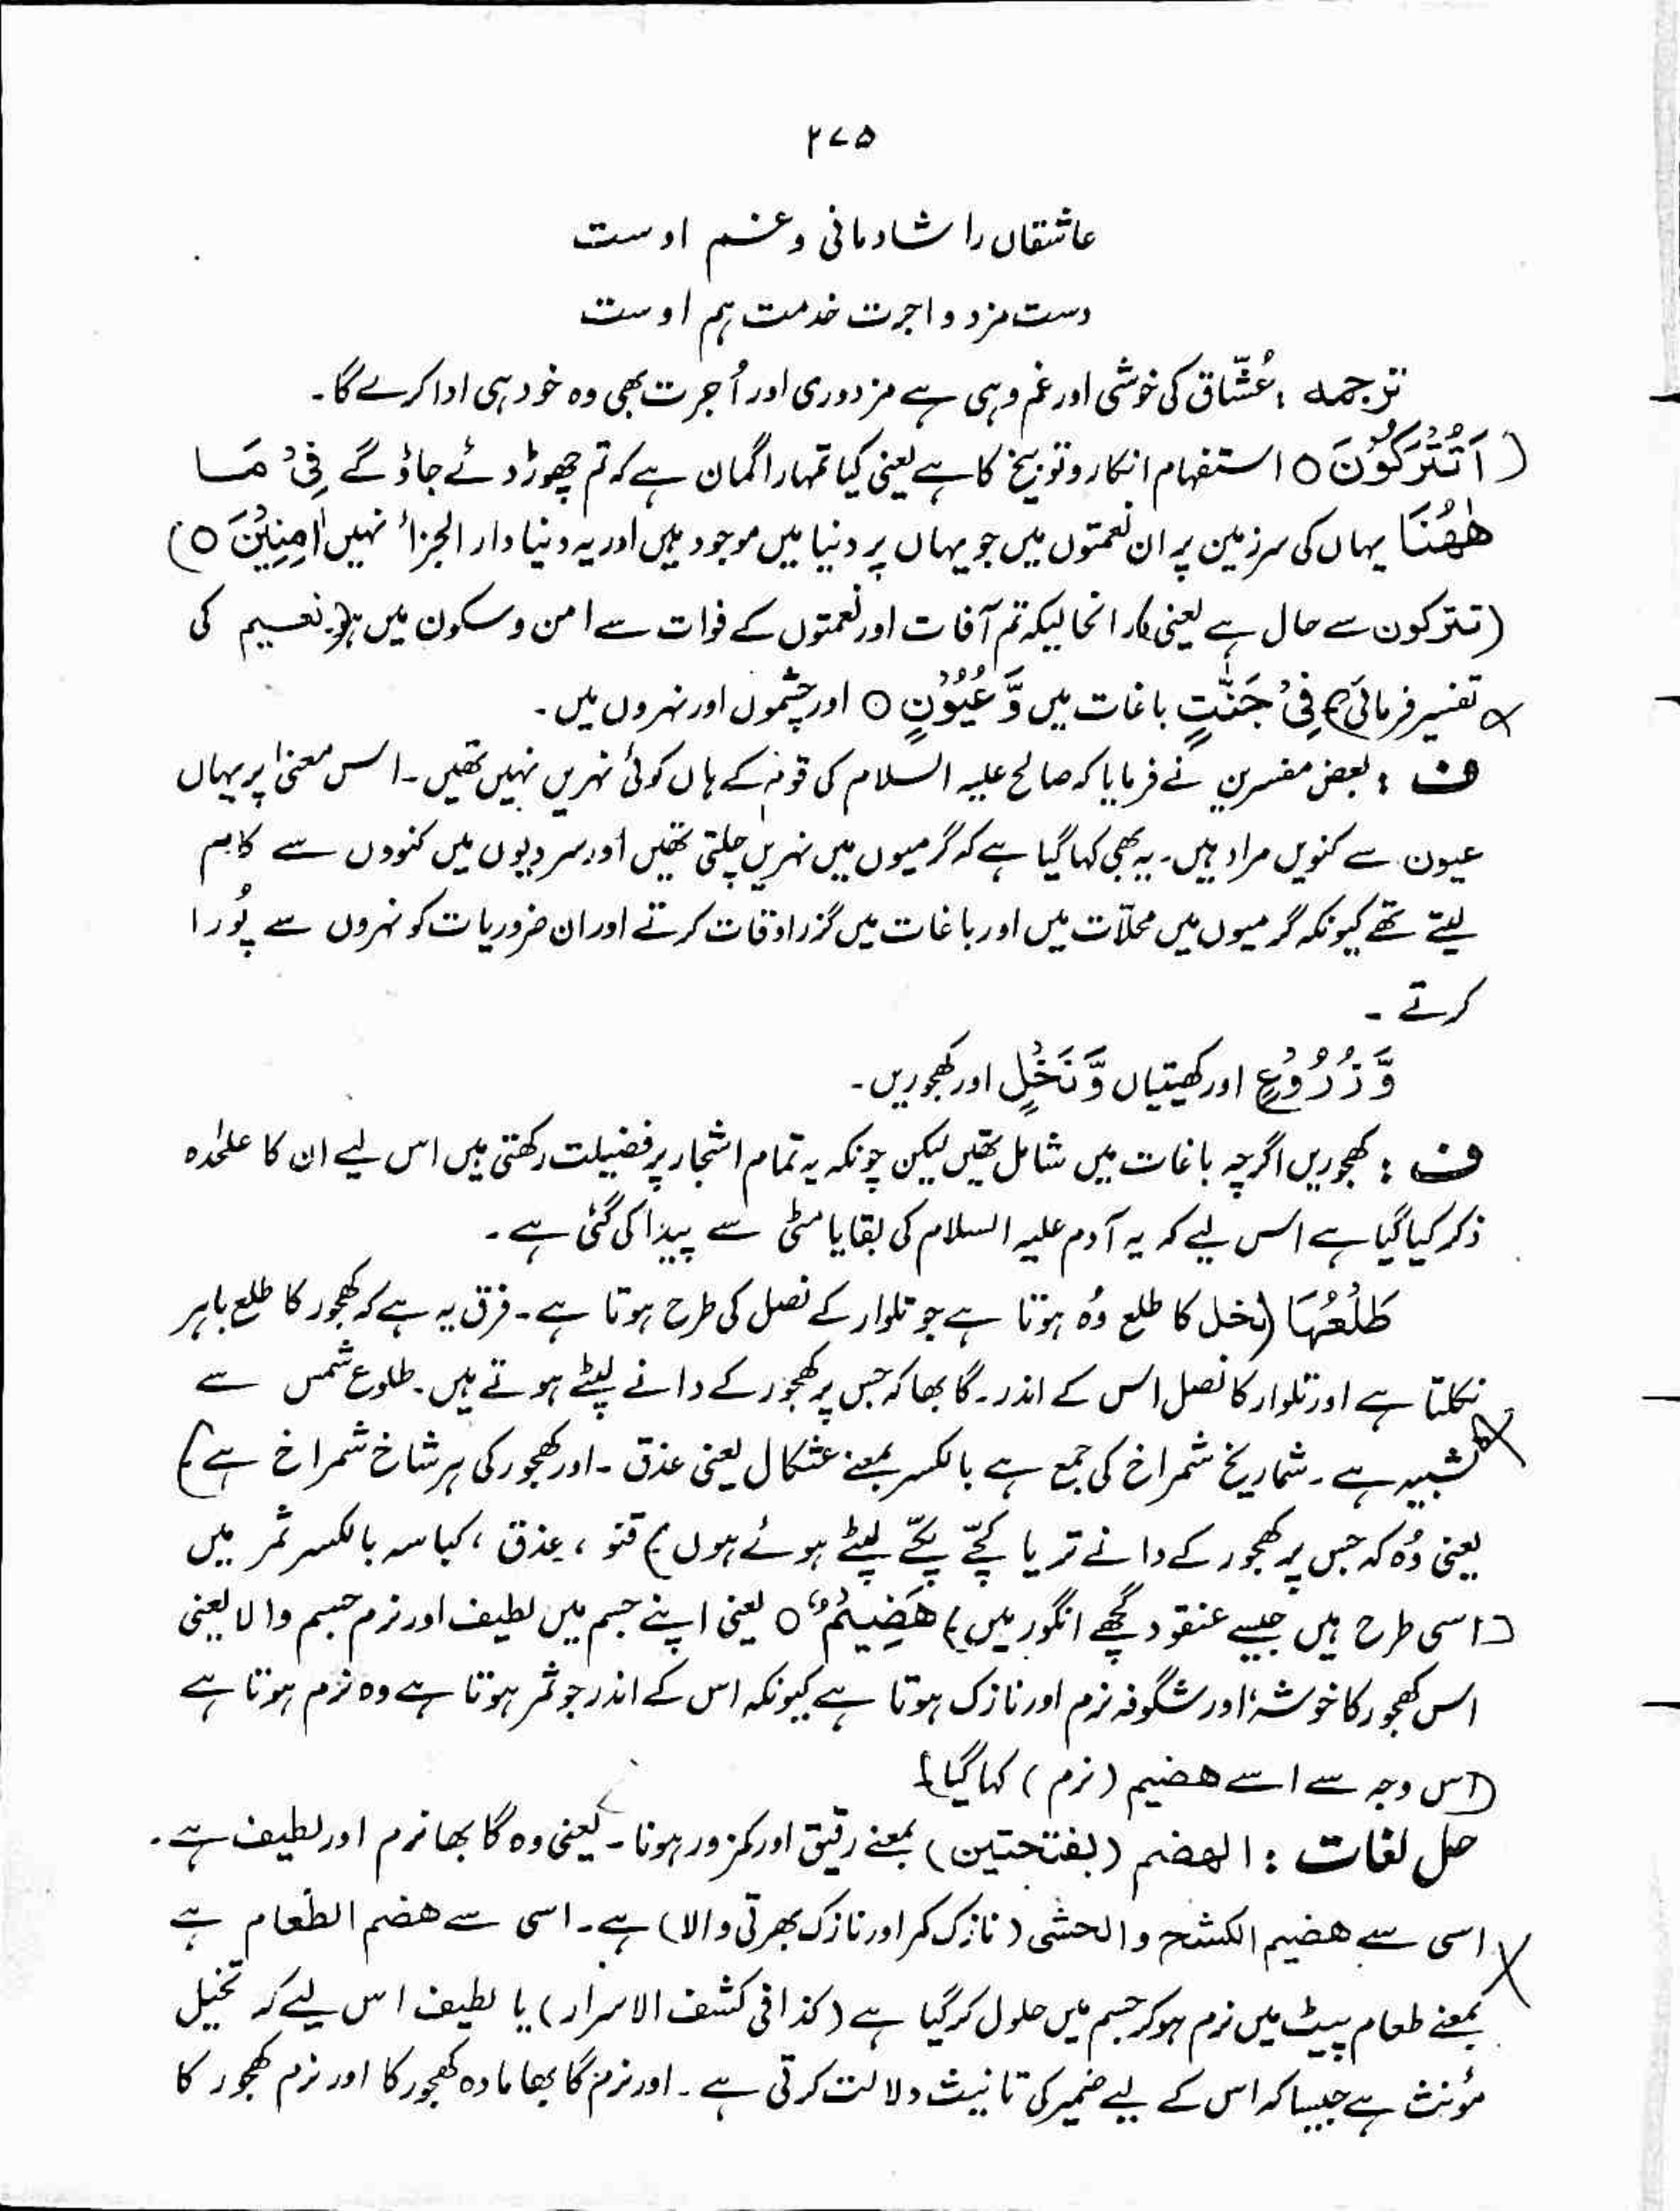 ۲۷۵
عاشقاں را شادمانی و غم اوست
دست مزد و اجرت خدمت ہم اوست
ترجمہ : عُشّاق کی خوشی اور غم وہی ہے مزدوری اور اُجرت بھی وہ خود ہی ادا کرے گا۔
(اَتُتْرَكُوْنَ ○ استفہام انکار و توبیخ کا ہے یعنی کیا تمہارا گمان ہے کہ تم چھوڑ دئے جاؤ گے فِیْ مَا
هٰهُنَا یہاں کی سرزمین پر ان نعمتوں میں جو یہاں پر دنیا میں موجود ہیں اور یہ دنیا دار الجزاٴ نہیں اٰمِنِیْنَ ○)
(تترکون سے حال ہے یعنی درانحالیکہ تم آفات اور نعمتوں کے فوات سے امن و سکون میں ہو) نعیم کی
تفسیر فرمائی فِیْ جَنّٰتٍ باغات میں وَّعُیُوْنٍ ○ اور چشموں اور نہروں میں۔
ف : بعض مفسرین نے فرمایا کہ صالح علیہ السلام کی قوم کے ہاں کوئی نہریں نہیں تھیں۔ اس معنیٰ پر یہاں
عیون سے کنویں مراد ہیں۔ یہ بھی کہا گیا ہے کہ گرمیوں میں نہریں چلتی تھیں اور سردیوں میں کنووں سے کام
لیتے تھے کیونکہ گرمیوں میں محلّات میں اور باغات میں گزر اوقات کرتے اور ان ضروریات کو نہروں سے پُورا
کرتے ۔
وَّزُرُوْعٍ اور کھیتیاں وَّنَخْلٍ اور کھجوریں۔
ف : کھجوریں اگرچہ باغات میں شامل تھیں لیکن چونکہ یہ تمام اشجار پر فضیلت رکھتی ہیں اس لیے ان کا علٰحدہ
ذکر کیا گیا ہے اس لیے کہ یہ آدم علیہ السلام کی بقایا مٹی سے پیدا کی گئی ہے۔
طَلْعُهَا (نخل کا طلع وُہ ہوتا ہے جو تلوار کے نصل کی طرح ہوتا ہے۔ فرق یہ ہے کہ کھجور کا طلع باہر
نکلتا ہے اور تلوار کا نصل اس کے اندر۔ گابھا کہ جس پر کھجور کے دانے لپٹے ہوتے ہیں۔ طلوع شمس سے
تشبیہ ہے۔ شماریخ شمراخ کی جمع ہے بالکسر بمعنے عشکال یعنی عذق۔ اور کھجور کی ہر شاخ شمراخ ہے)
یعنی وُہ کہ جس پر کھجور کے دانے تر یا کچّے پکّے لپٹے ہوئے ہوں) قنو ، عذق ، کباسہ بالکسر ثمر میں
(اسی طرح ہیں جیسے عنقود گچھے انگور میں) هَضِیْمٌ ○ یعنی اپنے جسم میں لطیف اور نرم جسم والا یعنی
اس کھجور کا خوشہ اور شگوفہ نرم اور نازک ہوتا ہے کیونکہ اس کے اندر جو ثمر ہوتا ہے وہ نرم ہوتا ہے
(اس وجہ سے اسے هضیم (نرم) کہا گیا)
حل لغات : الهضم (بفتحتین) بمعنے رقیق اور کمزور ہونا۔ یعنی وہ گابھا نرم اور لطیف ہے۔
اسی سے هضیم الکشح والحشی (نازک کمر اور نازک بھرتی والا) ہے۔ اسی سے هضم الطعام ہے
بمعنے طعام پیٹ میں نرم ہو کر جسم میں حلول کر گیا ہے (کذا فی کشف الاسرار) یا لطیف اس لیے کہ نخیل
مؤنث ہے جیسا کہ اس کے لیے ضمیر کی تانیث دلالت کرتی ہے۔ اور نرم گابھا مادہ کھجور کا اور نرم کھجور کا